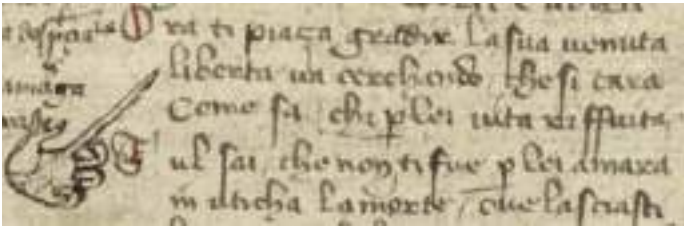 Ora ti piaça gradire la sua uenuta
liberta ua cerchando che si cara
Come sa chi ꝑ lei uita riffiuta
Tul sai che non ti fue ꝑ lei amara
in uticha la morte / oue lasciasti